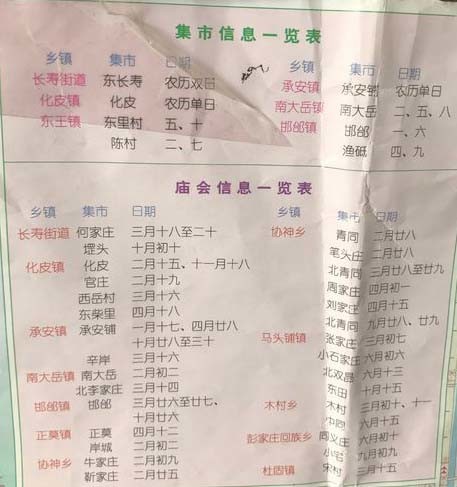 集市信息一览表
乡镇 集市 日期
长寿街道 东长寿 农历双日
化皮镇 化皮 农历单日
东王镇 东里村 五、十
陈村 二、七
乡镇 集市 日期
承安镇 承安铺 农历单日
南大岳镇 南大岳 二、五、八
邯邰镇 邯邰 一、六
渔砥 四、九
庙会信息一览表
乡镇 集市 日期
长寿街道 何家庄 三月十八至二十
堽头 十月初十
化皮镇 化皮 二月十五、十一月十八
官庄 二月十九
西岳村 三月十六
东柴里 四月十八
承安镇 承安铺 一月十七、四月廿八
十月廿八至三十
辛岸 三月十六
南大岳镇 南大岳 二月初二
北李家庄 三月十四
邯邰镇 邯邰 三月廿六至廿七、
十月廿六
正莫镇 正莫 四月十二
岸城 二月初二
协神乡 牛家庄 二月初九
靳家庄 二月廿五
乡镇 集市 日期
协神乡 青同 二月廿八
笔头庄 二月廿八
北青同 三月廿八至廿九
周家庄 四月初一
刘家庄 四月十五
北青同 九月廿八、廿九
马头铺镇 张家庄 三月初七
小石家庄 六月初六
北双晶 六月十三
东田 十月十五
木村乡 木村 三月初十、十一
中同 六月十五
彭家庄回族乡 同义庄 六月初六
小宅 九月初九
杜固镇 宋村 三月十五